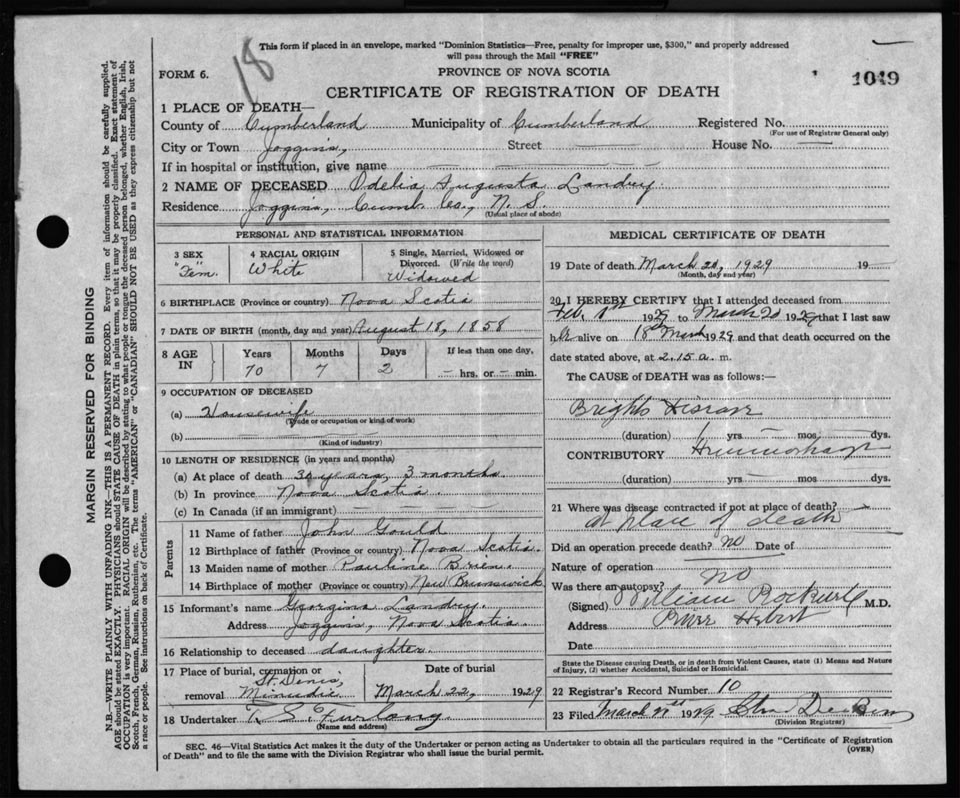 18
This form if placed in an envelope, marked "Dominion Statistics—Free, penalty for improper use, $300," and properly addressed
will pass through the Mail "FREE"
FORM 6.
PROVINCE OF NOVA SCOTIA
1049
CERTIFICATE OF REGISTRATION OF DEATH
1 PLACE OF DEATH—
County of Cumberland Municipality of Cumberland Registered No.
(For use of Registrar General only)
City or Town Joggins, Street House No.
If in hospital or institution, give name
2 NAME OF DECEASED Odelia Augusta Landry.
Residence Joggins, Cumb. Co., N. S.
(Usual place of abode)
PERSONAL AND STATISTICAL INFORMATION
3 SEX 4 RACIAL ORIGIN 5 Single, Married, Widowed or
Divorced. (Write the word)
"Fem." White Widowed
6 BIRTHPLACE (Province or country) Nova Scotia
7 DATE OF BIRTH (month, day and year) August 18, 1858
8 AGE IN Years Months Days If less than one day,
70 7 2 — hrs. or — min.
9 OCCUPATION OF DECEASED
(a) Housewife
(Trade or occupation or kind of work)
(b)
(Kind of industry)
10 LENGTH OF RESIDENCE (in years and months)
(a) At place of death 30 years, 3 months
(b) In province Nova Scotia.
(c) In Canada (if an immigrant)
Parents
11 Name of father John Gould
12 Birthplace of father (Province or country) Nova Scotia.
13 Maiden name of mother Pauline Brien.
14 Birthplace of mother (Province or country) New Brunswick
15 Informant's name Georgina Landry.
Address Joggins, Nova Scotia.
16 Relationship to deceased daughter.
17 Place of burial, cremation or Date of burial
St. Denis,
removal Minudie March 22, 1929
18 Undertaker R. S. Furlong
(Name and address)
MEDICAL CERTIFICATE OF DEATH
19 Date of death March 20, 1929 19
(Month, day and year)
20 I HEREBY CERTIFY that I attended deceased from
Feb. 1st 1929 to March 20 1929 that I last saw
her alive on 18th March 1929 and that death occurred on the
date stated above, at 2.15 a. m.
The CAUSE of DEATH was as follows:—
Brights Disease
(duration) 1 yrs — mos — dys.
CONTRIBUTORY Hemmorhage
(duration) yrs. mos. dys.
21 Where was disease contracted if not at place of death?
at place of death
Did an operation precede death? NO Date of
Nature of operation
Was there an autopsy? NO
(Signed) William Rockwell M.D.
Address River Hebert
Date
State the Disease causing Death, or in death from Violent Causes, state (1) Means and Nature
of Injury, (2) whether Accidental, Suicidal or Homicidal.
22 Registrar's Record Number 10
23 Filed March 21st 1929
(Division Registrar)
SEC. 46—Vital Statistics Act makes it the duty of the Undertaker or person acting as Undertaker to obtain all the particulars required in the "Certificate of Registration
of Death" and to file the same with the Division Registrar who shall issue the burial permit.
(OVER)
MARGIN RESERVED FOR BINDING
N.B.—WRITE PLAINLY WITH UNFADING INK—THIS IS A PERMANENT RECORD. Every item of information should be carefully supplied.
AGE should be stated EXACTLY. PHYSICIANS should STATE CAUSE OF DEATH in plain terms, so that it may be properly classified. Exact statement of
OCCUPATION is very important. RACIAL ORIGIN will be described by stating to what people or tongue the deceased person belonged, whether English, Irish,
Scotch, French, German, Russian, Ruthenian, etc. The terms "AMERICAN" or "CANADIAN" SHOULD NOT BE USED as they express citizenship but not
a race or people. See instructions on back of Certificate.